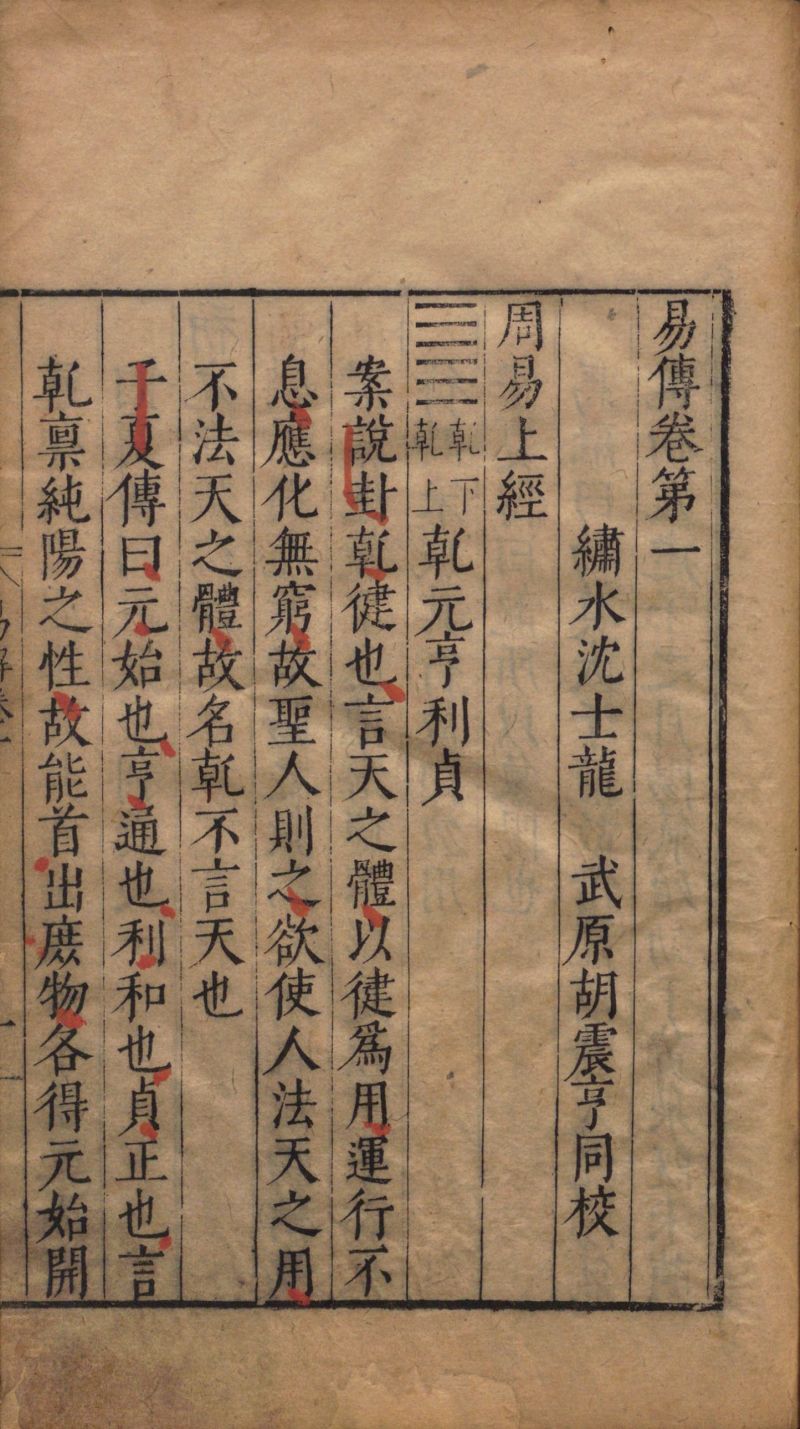 易傳卷第一
繡水沈士龍　武原胡震亨同校
周易上經
䷀乾下乾上乾元亨利貞
案說卦乾健也言天之體以健爲用運行不
息應化無窮故聖人則之欲使人法天之用
不法天之體故名乾不言天也
子夏傳曰元始也亨通也利和也貞正也言
乾禀純陽之性故能首出庶物各得元始開